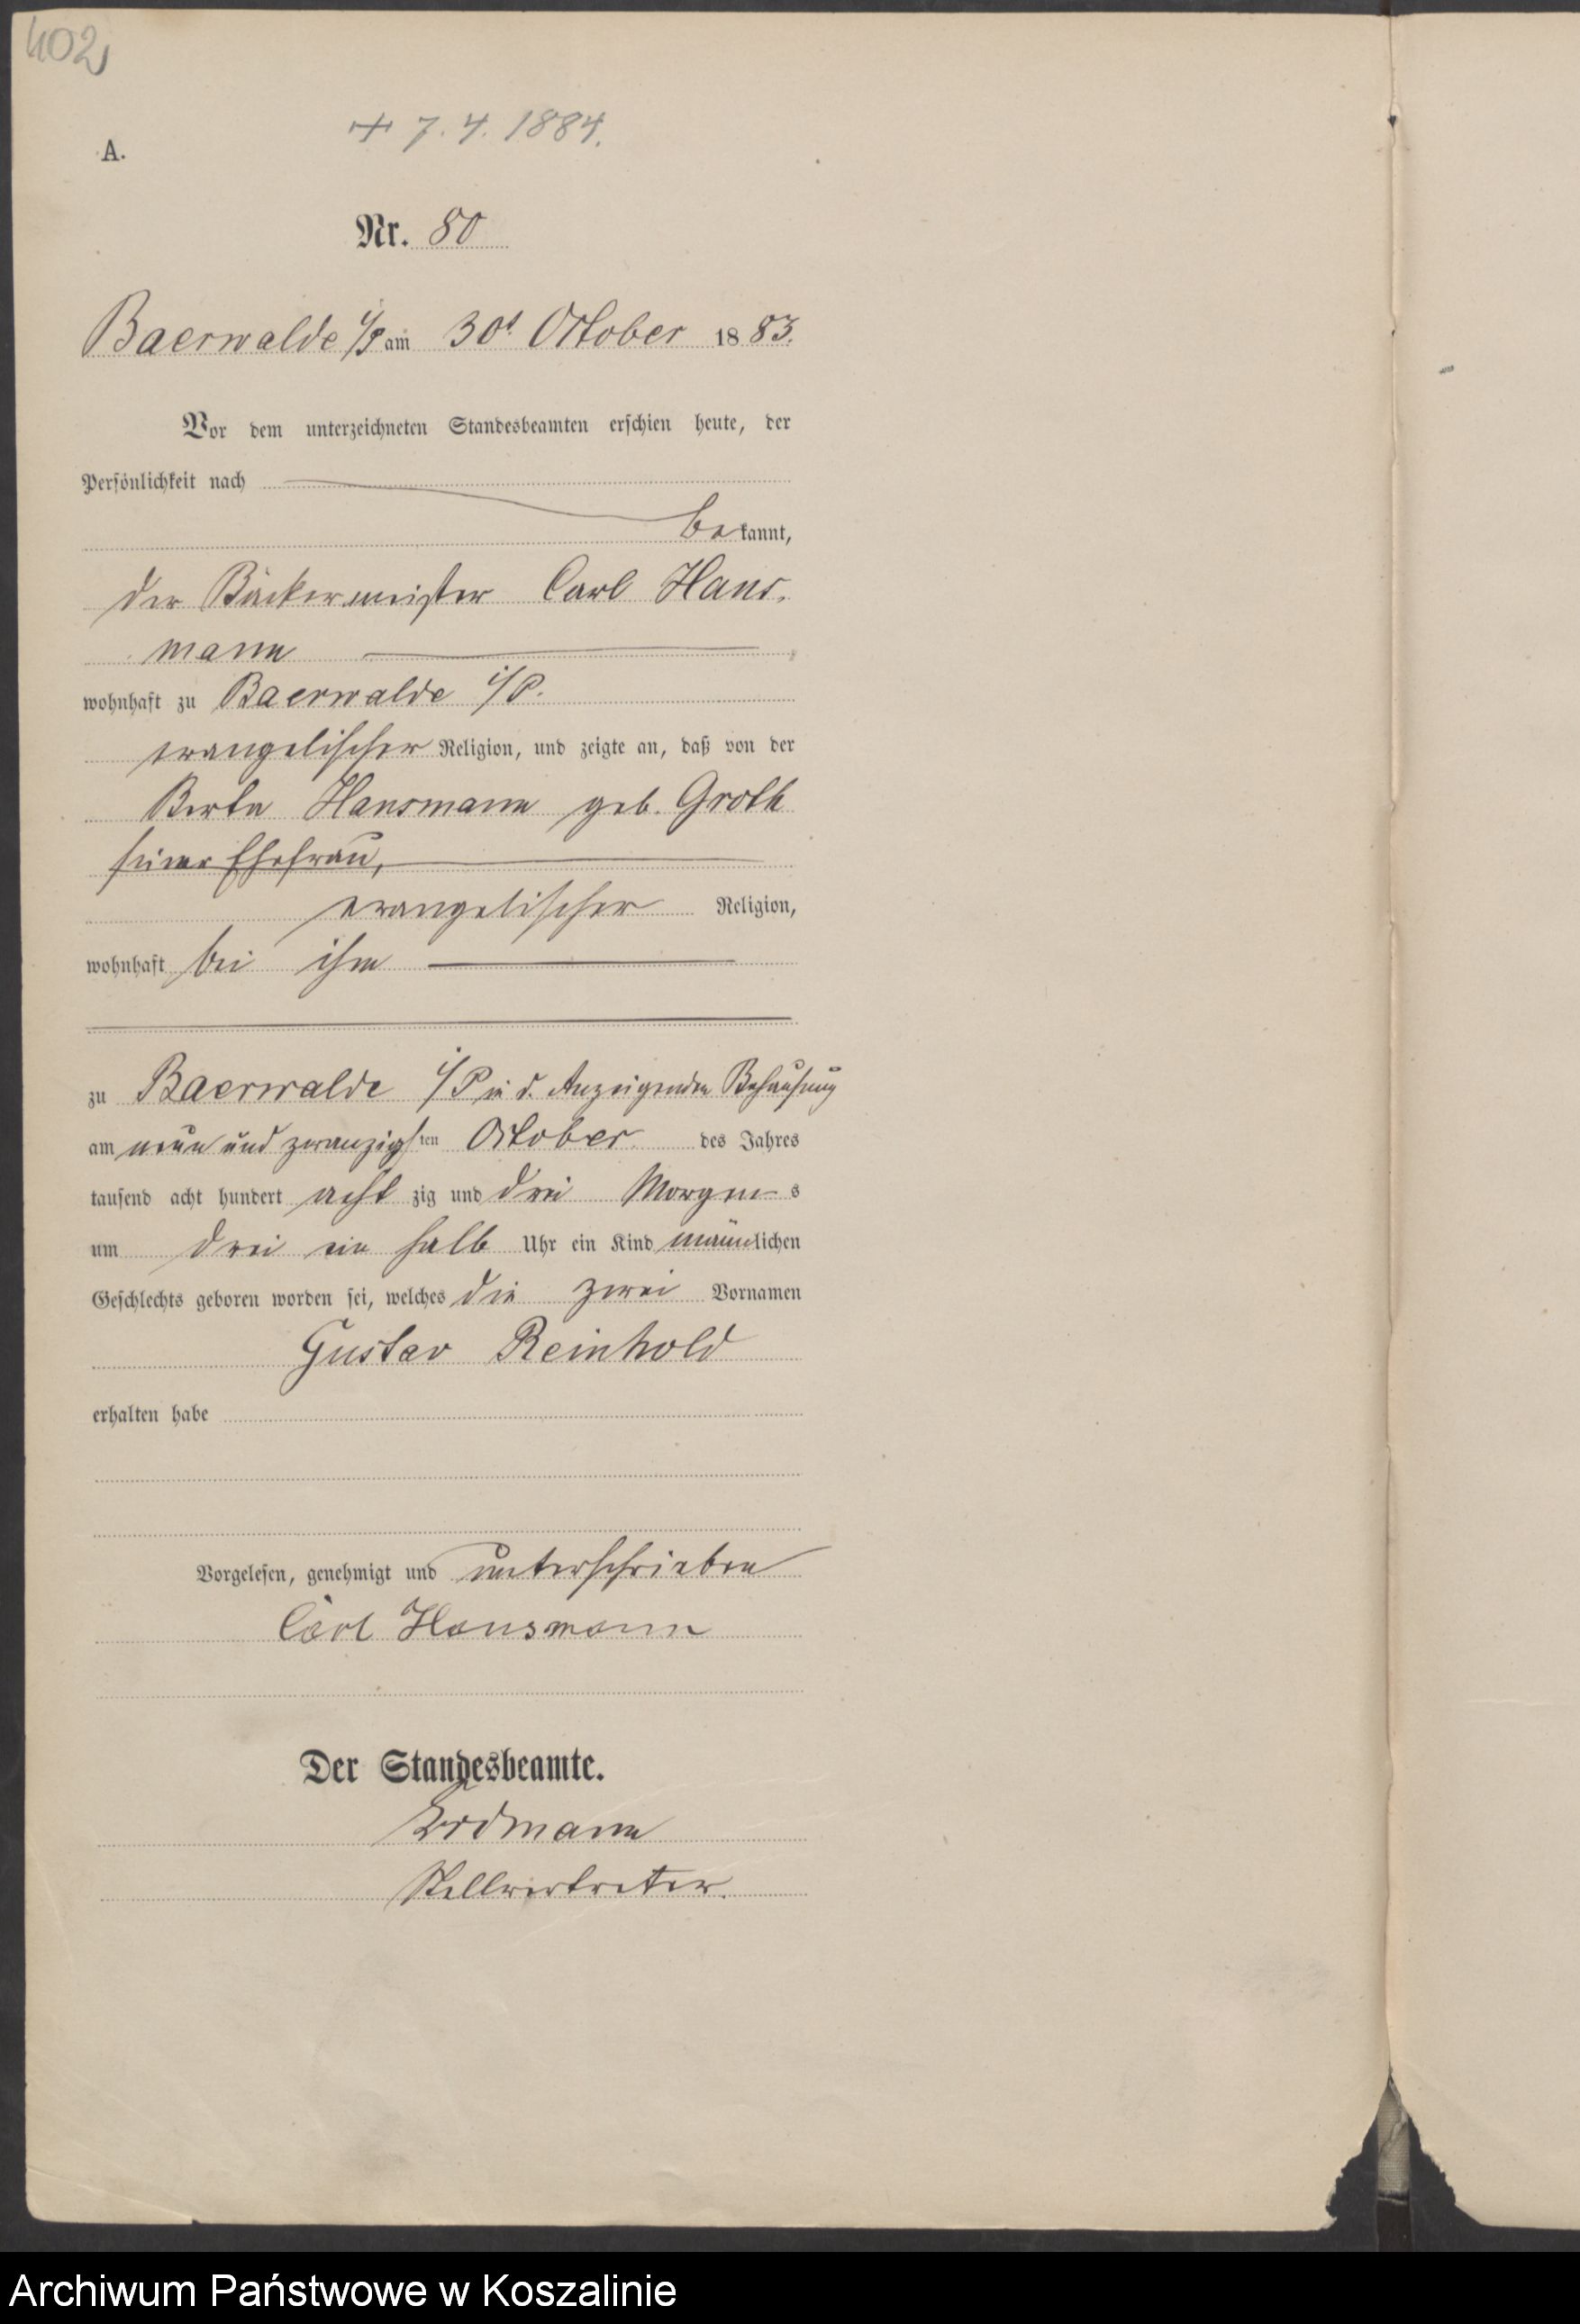 402
+ 7. 4. 1884.
A.
Nr. 80
Baerwalde i/P am 30t October 1883.
Vor dem unterzeichneten Standesbeamten erschien heute, der
Persönlichkeit nach
bekannt,
der Bäckermeister Carl Hans-
mann
wohnhaft zu Baerwalde i/P.
evangelischer Religion, und zeigte an, daß von der
Berta Hansmann geb. Groth
seiner Ehefrau,
evangelischer Religion,
wohnhaft bei ihm
zu Baerwalde i/P in d. Anzeigenden Behausung
am neun und zwanzigsten October des Jahres
tausend acht hundert acht zig und drei Morgens
um drei ein halb Uhr ein Kind männlichen
Geschlechts geboren worden sei, welches die zwei Vornamen
Gustav Reinhold
erhalten habe
Vorgelesen, genehmigt und unterschrieben
Carl Hansmann
Der Standesbeamte.
Erdmann
Stellvertreter.
Archiwum Państwowe w Koszalinie